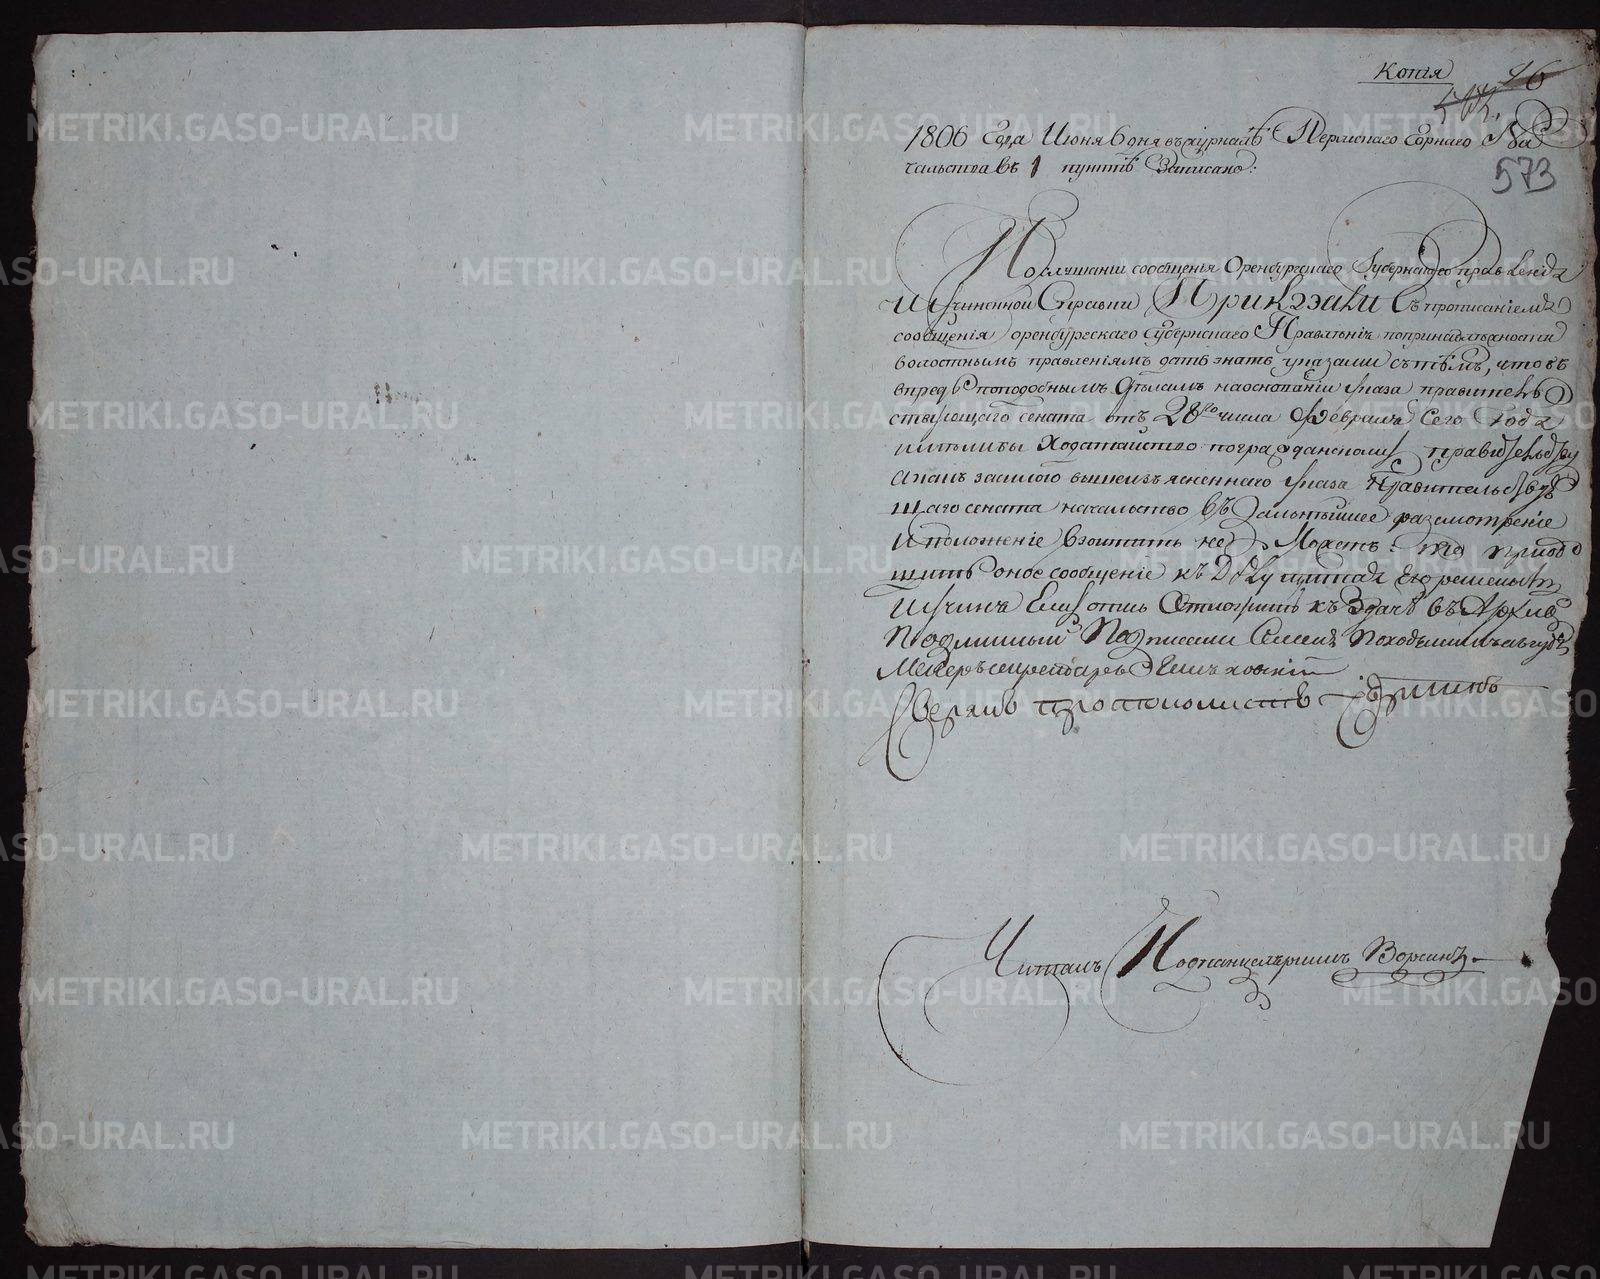 Копія
573
1806 Года Июня 6 дня въ журналѣ Пермскаго Горнаго На
чальства въ 1 пунктѣ Записано:
По слушаніи сообщенія Оренбургскаго Губернскаго правленія
И учиненной Справки Приказали Съ прописаніемъ
сообщенія оренбургскаго Губернскаго Правленія попринадлежности
волостнымъ правленіямъ дать знать указами съ тѣмъ, чтобъ
впредь по подобнымъ Дѣламъ на основаніи указа правитель
ствующаго сената отъ 28го числа Февраля Сего Года
имѣли бы Ходатайство по гражданскому правительству
А какъ за силою вышеизъясненнаго указа Правительству
ющаго сената начальство въ Дальнѣйшее разсмотреніе
И положеніе взойтить не Можетъ: то приоб
щить оное сообщеніе къ Дѣлу щитая Его решенымъ
И учиня Ему опись Отложить къ Здачѣ въ Архивъ
Подлинный Подписали
секретарь
Верно протоколистъ
Читалъ Подканцеляристъ
METRIKI.GASO-URAL.RU